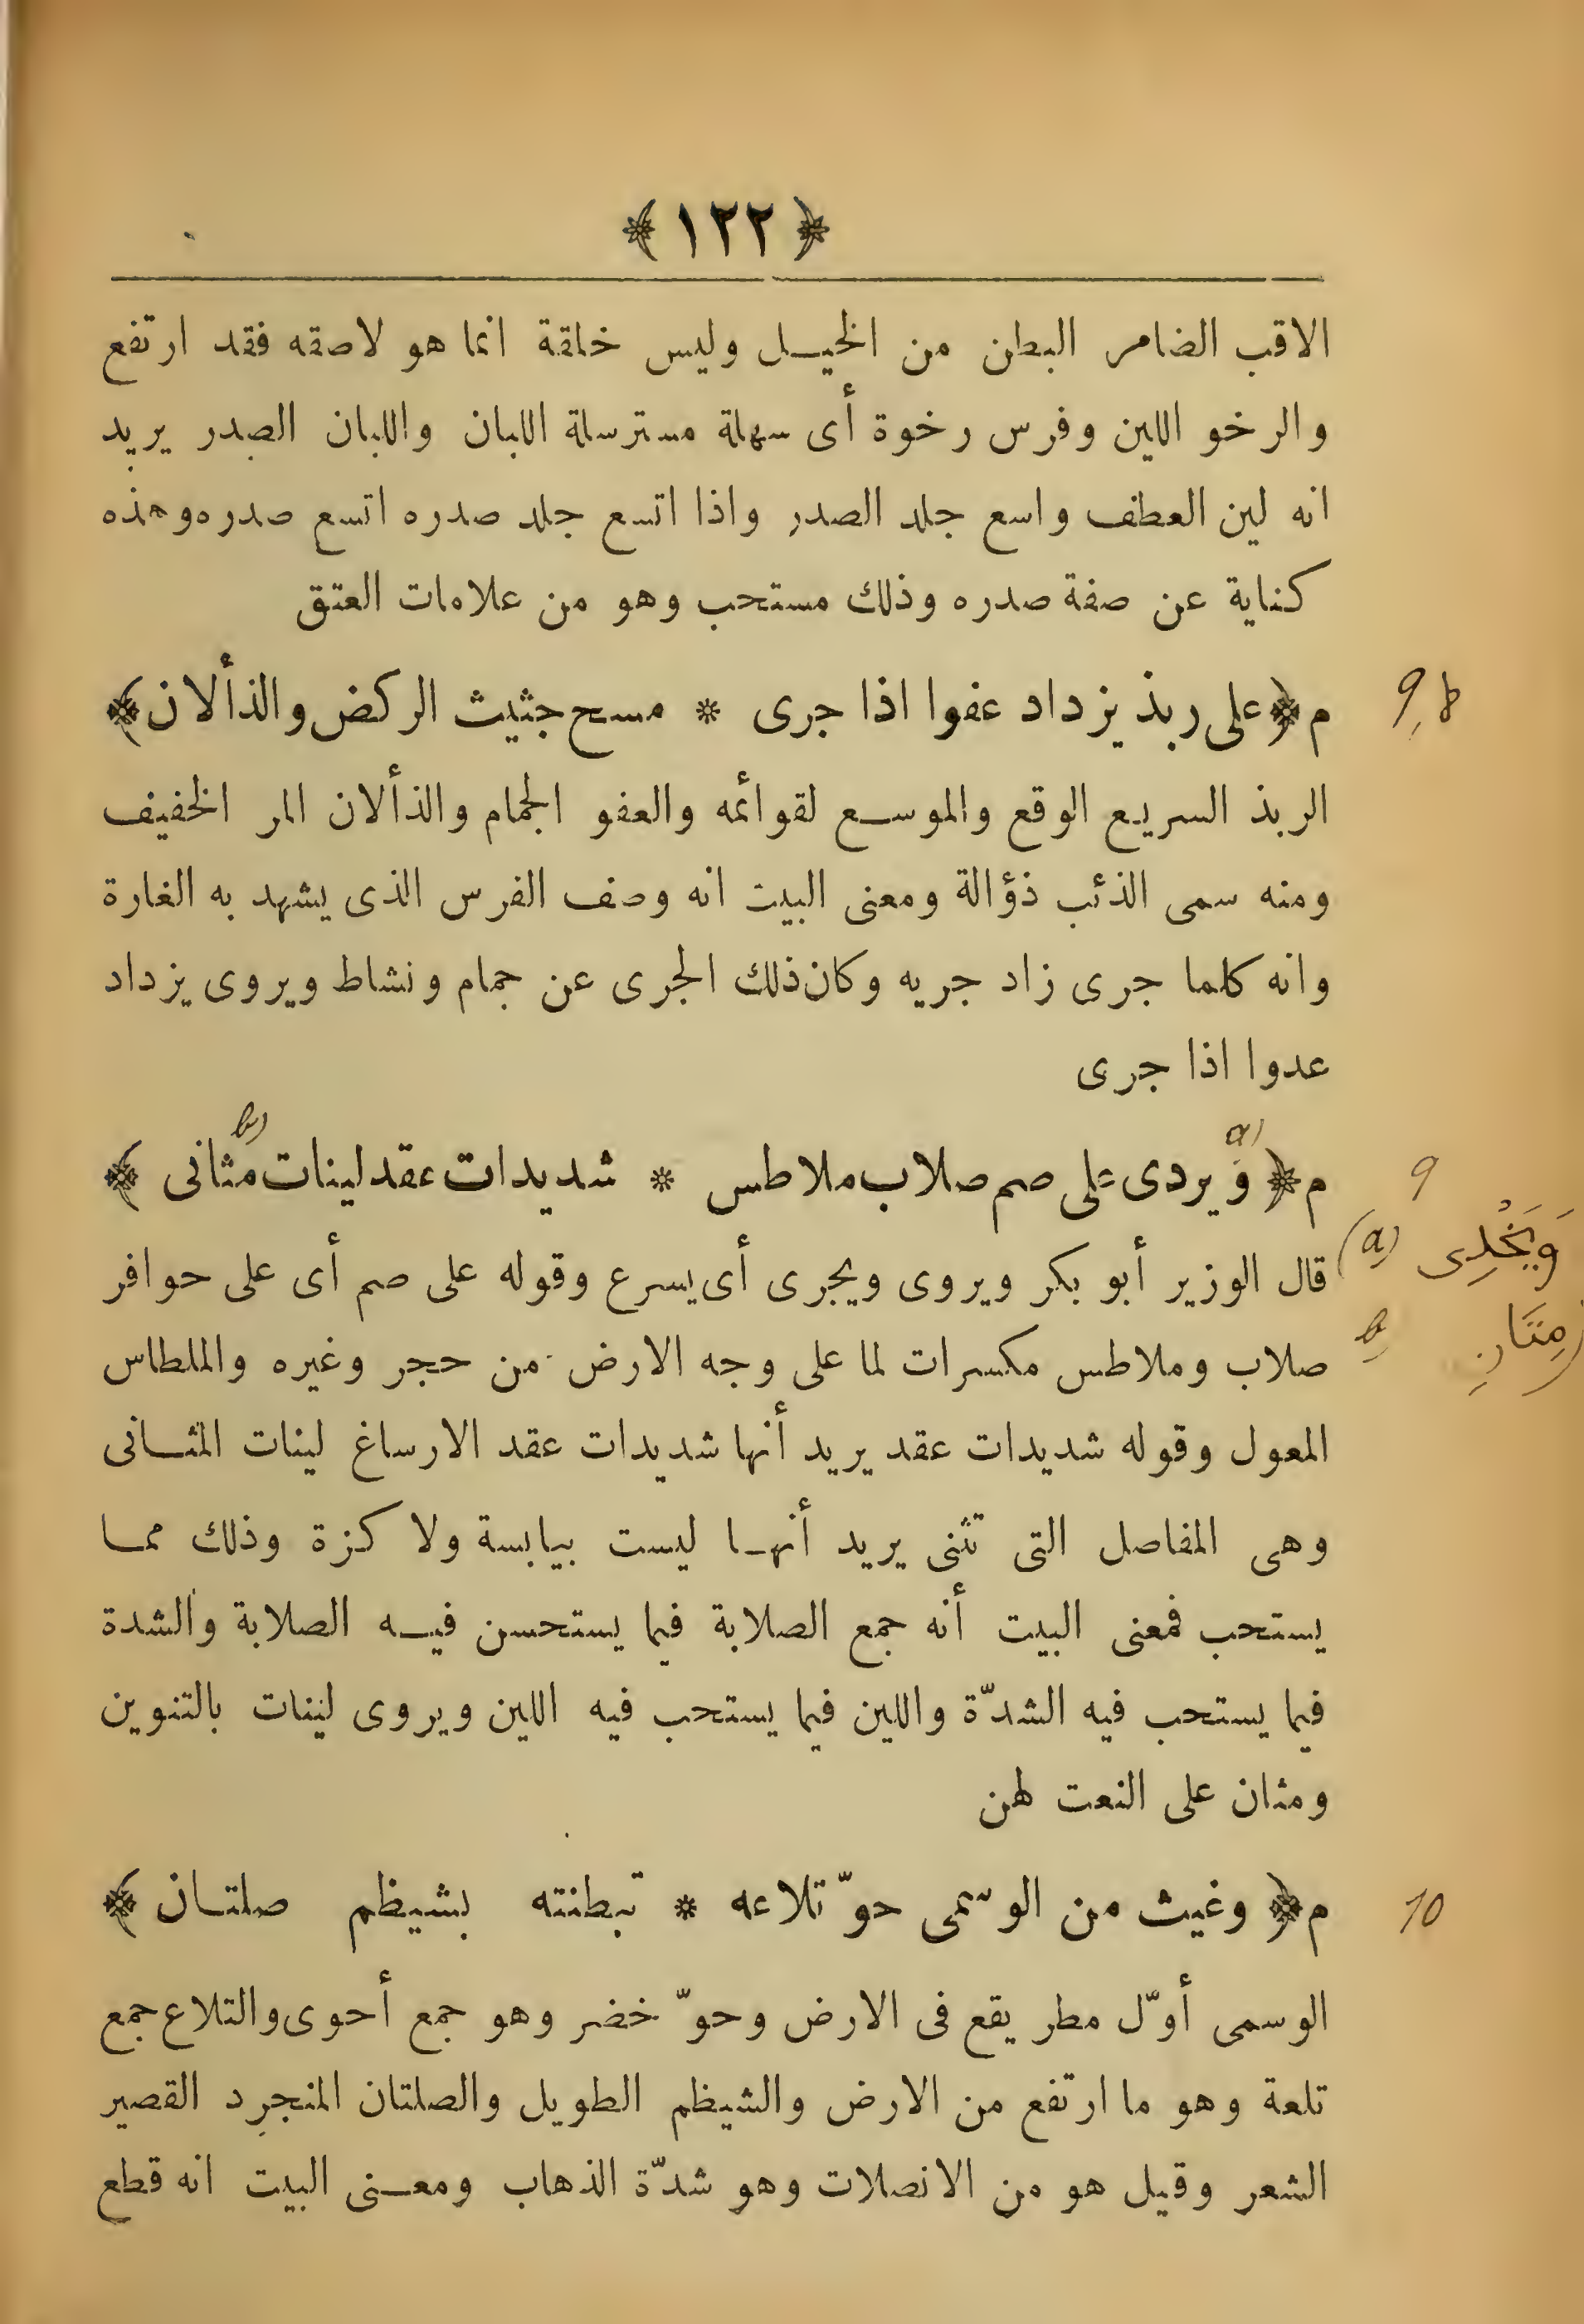 ﴿ ١٢٢ ﴾
الاقب الضامر البطن من الخيل وليس خلقة انما هو لاصقه فقد ارتفع
والرخو اللين وفرس رخوة أى سهلة مسترسلة اللبان واللبان الصدر يريد
انه لين العطف واسع جلد الصدر واذا اتسع جلد صدره اتسع صدره وهذه
كناية عن صفة صدره وذلك مستحب وهو من علامات العتق
م﴿ على ربذ يزداد عفوا اذا جرى * مسح حثيث الركض والذألان ﴾ 9,b
الربذ السريع الوقع والموسع لقوائمه والعفو الجمام والذألان المر الخفيف
ومنه سمى الذئب ذؤالة ومعنى البيت انه وصف الفرس الذى يشهد به الغارة
وانه كلما جرى زاد جريه وكان ذلك الجرى عن جمام ونشاط ويروى يزداد
عدوا اذا جرى
م﴿ ويردى على صم صلاب ملاطس * شديدات عقد لينات مثانى ﴾ 9
a) b)
قال الوزير أبو بكر ويروى ويجرى أى يسرع وقوله على صم أى على حوافر
(a) وَيَخْدِى
صلاب وملاطس مكسرات لما على وجه الارض من حجر وغيره والملطاس
b) مِتَانِ
المعول وقوله شديدات عقد يريد أنها شديدات عقد الارساغ لينات المثانى
وهى المفاصل التى تثنى يريد أنها ليست بيابسة ولا كزة وذلك مما
يستحب فمعنى البيت أنه جمع الصلابة فيما يستحسن فيه الصلابة والشدة
فيما يستحب فيه الشدّة واللين فيما يستحب فيه اللين ويروى لينات بالتنوين
ومثان على النعت لهن
م﴿ وغيث من الوسمى حوّ تلاعه * تبطنته بشيظم صلتان ﴾ 10
الوسمى أوّل مطر يقع فى الارض وحوّ خضر وهو جمع أحوى والتلاع جمع
تلعة وهو ما ارتفع من الارض والشيظم الطويل والصلتان المنجرد القصير
الشعر وقيل هو من الانصلات وهو شدّة الذهاب ومعنى البيت انه قطع